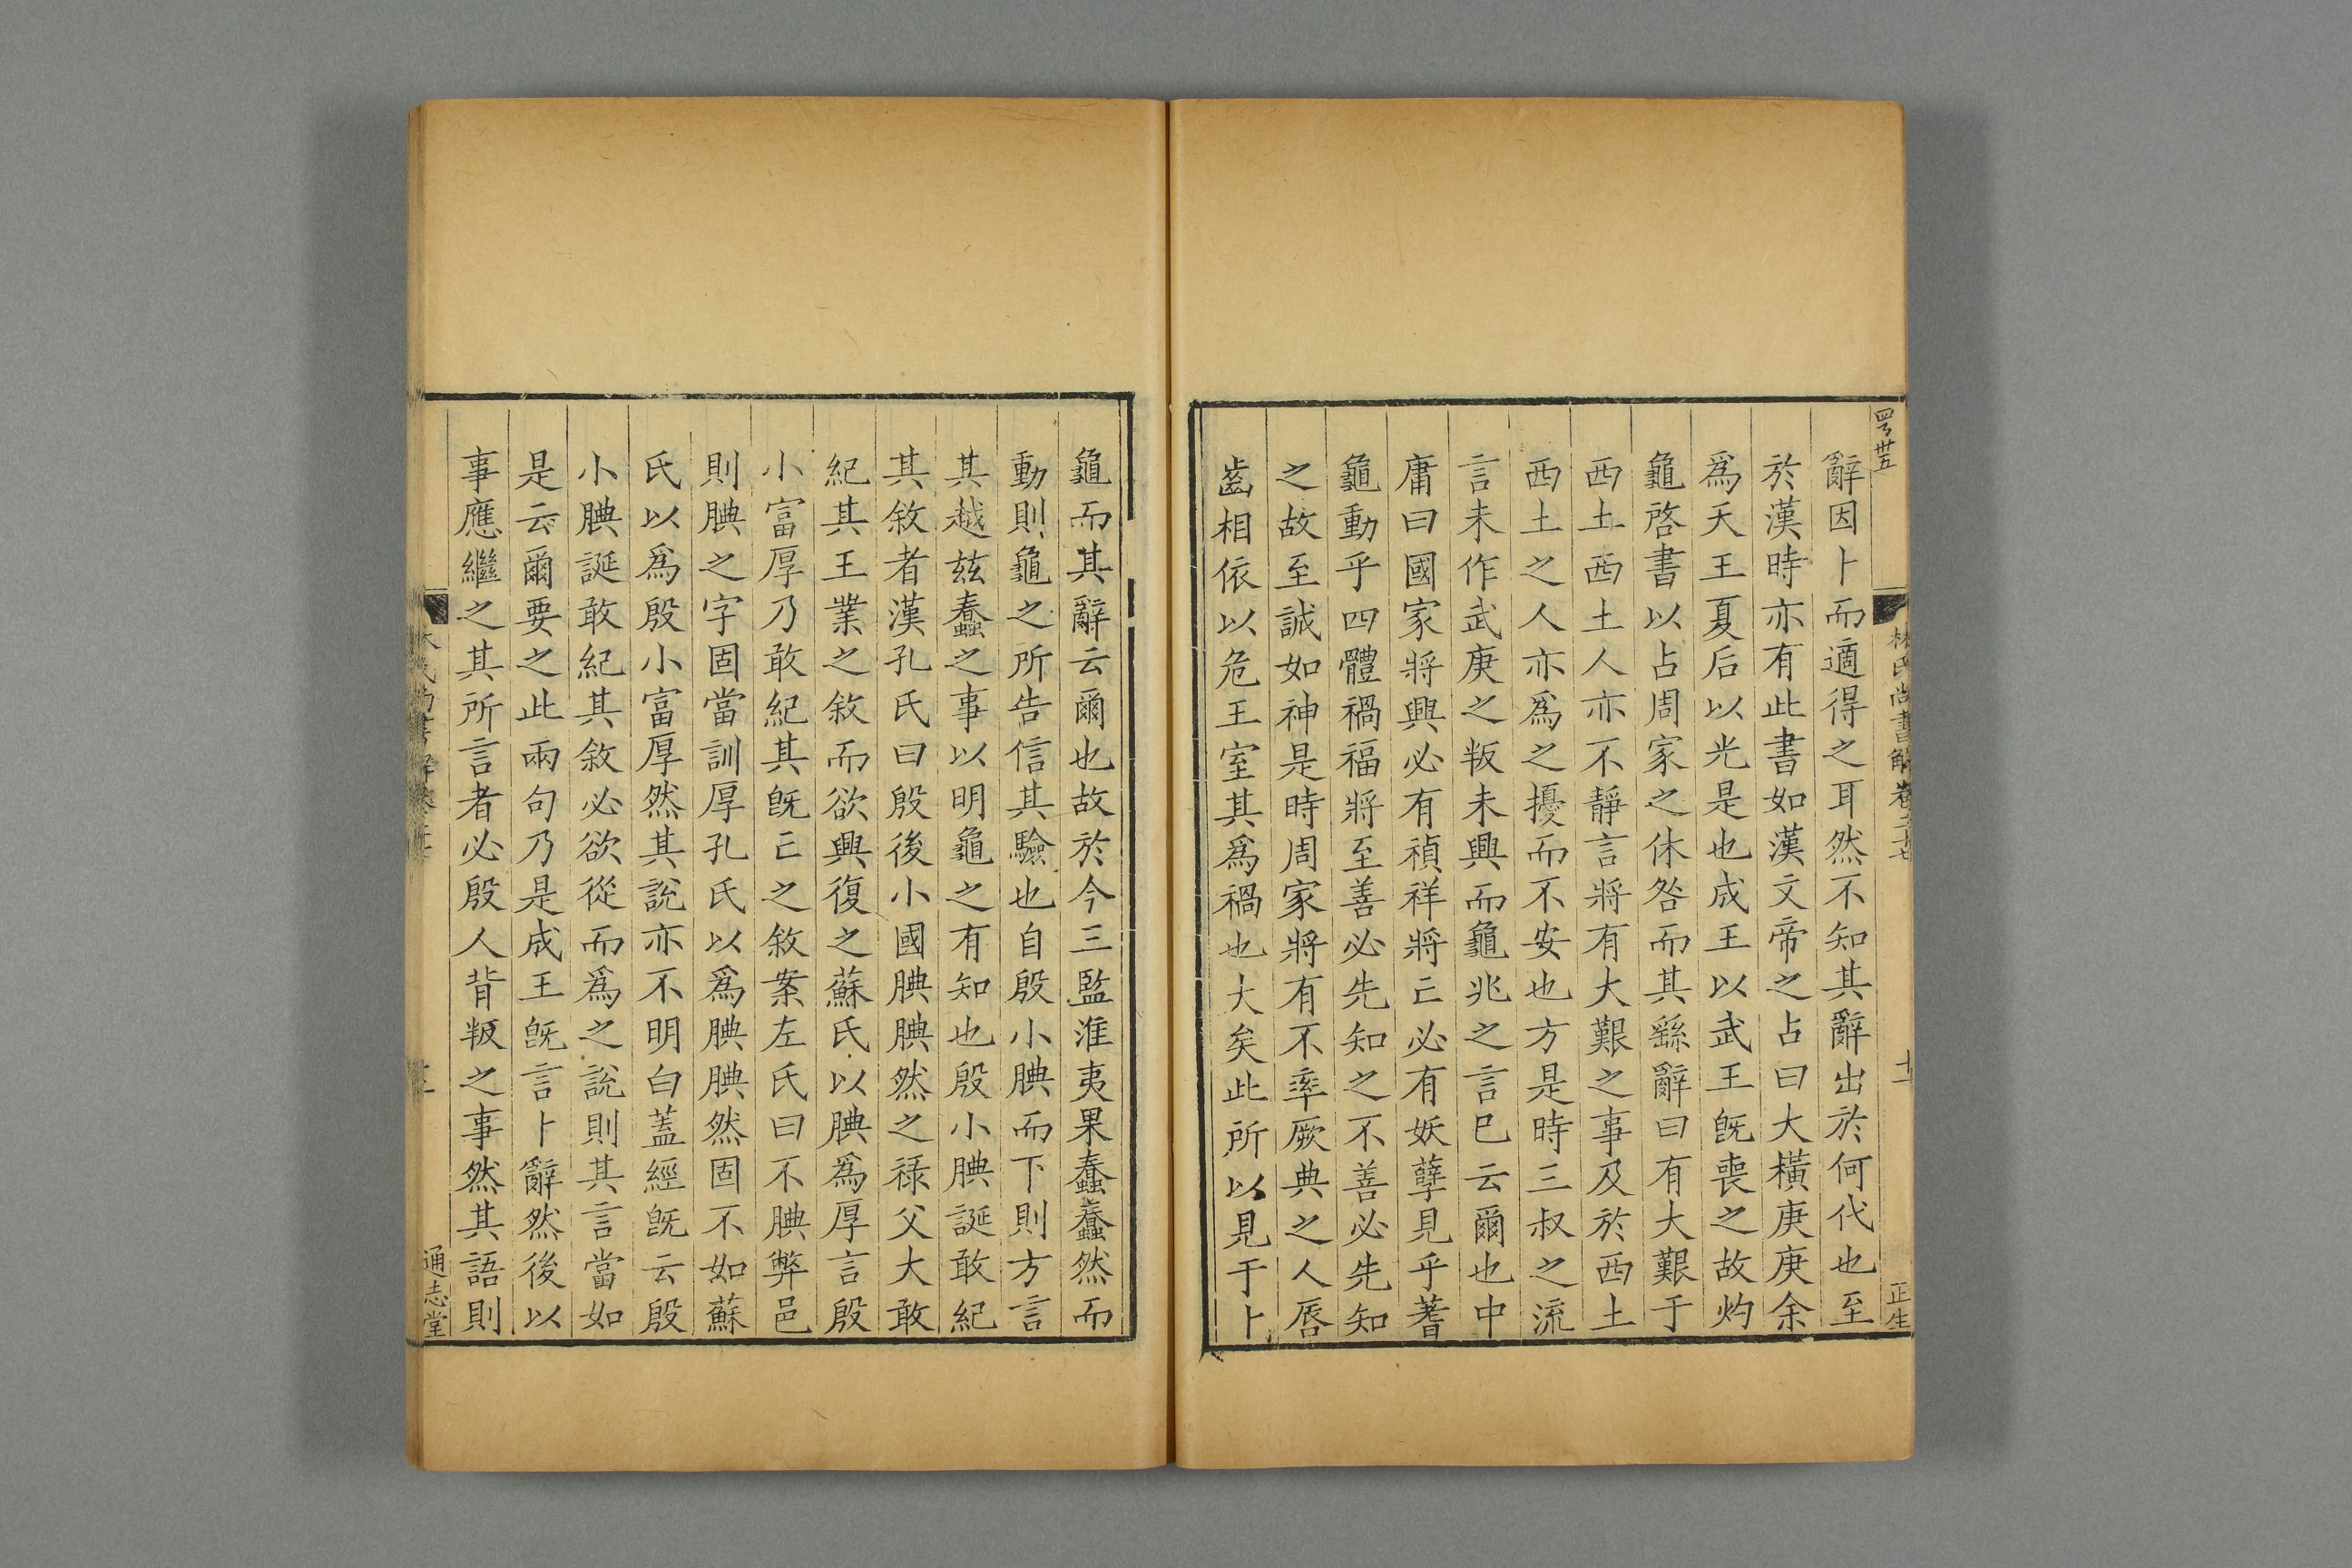 林氏尚書解卷二十七
十二
正生
辭因卜而適得之耳然不知其辭出於何代也至
於漢時亦有此書如漢文帝之占曰大橫庚庚余
爲天王夏后以光是也成王以武王旣喪之故灼
龜啓書以占周家之休咎而其繇辭曰有大艱于
西土西土人亦不靜言將有大艱之事及於西土
西土之人亦爲之擾而不安也方是時三叔之流
言未作武庚之叛未興而龜兆之言巳云爾也中
庸曰國家將興必有禎祥將亡必有妖孽見乎蓍
龜動乎四體禍福將至善必先知之不善必先知
之故至誠如神是時周家將有不率厥典之人脣
齒相依以危王室其爲禍也大矣此所以見于卜
龜而其辭云爾也故於今三監淮夷果蠢蠢然而
動則龜之所告信其驗也自殷小腆而下則方言
其越茲蠢之事以明龜之有知也殷小腆誕敢紀
其敘者漢孔氏曰殷後小國腆腆然之祿父大敢
紀其王業之敘而欲興復之蘇氏以腆爲厚言殷
小富厚乃敢紀其旣亡之敘案左氏曰不腆弊邑
則腆之字固當訓厚孔氏以爲腆腆然固不如蘇
氏以爲殷小富厚然其說亦不明白蓋經旣云殷
小腆誕敢紀其敘必欲從而爲之說則其言當如
是云爾要之此兩句乃是成王旣言卜辭然後以
事應繼之其所言者必殷人背叛之事然其語則
通志堂